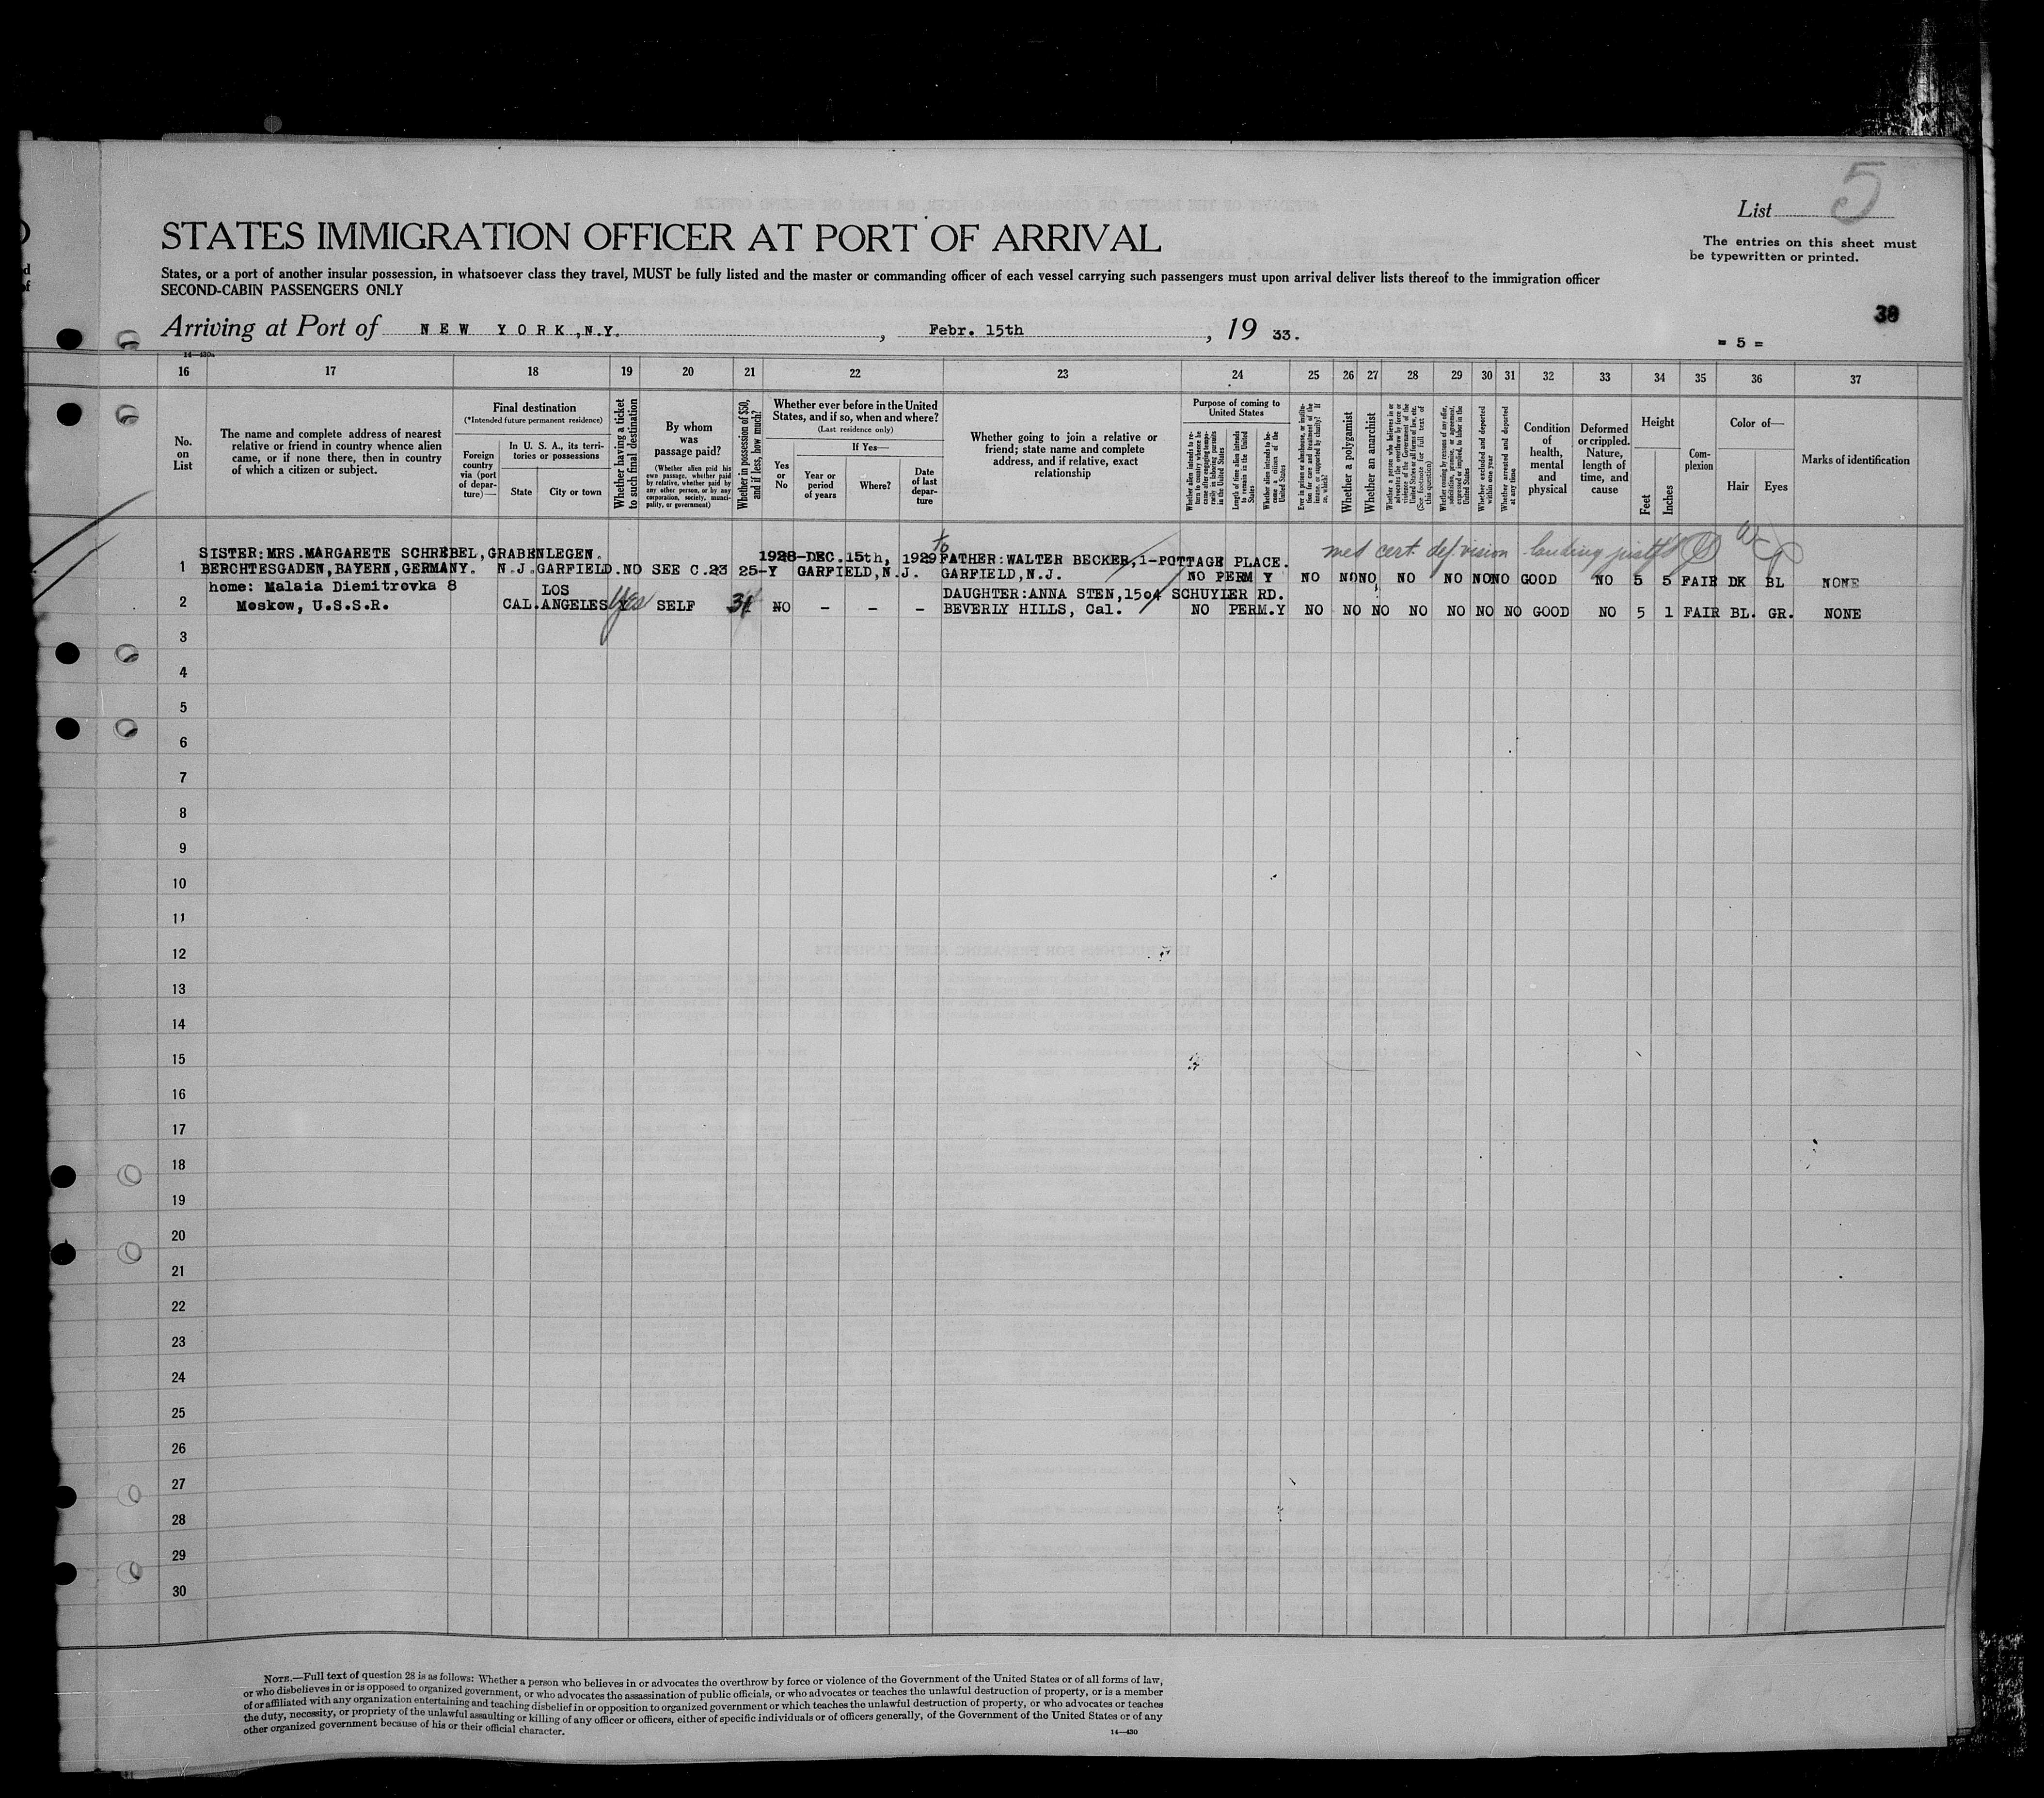 5
List
STATES IMMIGRATION OFFICER AT PORT OF ARRIVAL
The entries on this sheet must
be typewritten or printed.
States, or a port of another insular possession, in whatsoever class they travel, MUST be fully listed and the master or commanding officer of each vessel carrying such passengers must upon arrival deliver lists thereof to the immigration officer
SECOND-CABIN PASSENGERS ONLY
38
Arriving at Port of NEW YORK, N.Y., Febr. 15th, 19 33.
= 5 =
14—430a
16 17 18 19 20 21 22 23 24 25 26 27 28 29 30 31 32 33 34 35 36 37
No. on List
The name and complete address of nearest
relative or friend in country whence alien
came, or if none there, then in country
of which a citizen or subject.
Final destination
(*Intended future permanent residence)
Foreign country via (port of departure)—
In U. S. A., its territories or possessions
State
City or town
Whether having a ticket to such final destination
By whom was passage paid?
(Whether alien paid his own passage, whether paid by relative, whether paid by any other person, or by any corporation, society, municipality, or government)
Whether in possession of $50, and if less, how much?
Whether ever before in the United States, and if so, when and where?
(Last residence only)
Yes or No
If Yes—
Year or period of years
Where?
Date of last departure
Whether going to join a relative or
friend; state name and complete
address, and if relative, exact
relationship
Purpose of coming to United States
Whether alien intends to return to country whence he came after engaging temporarily in laboring pursuits in the United States
Length of time alien intends to remain in the United States
Whether alien intends to become a citizen of the United States
Ever in prison or almshouse, or institution for care and treatment of the insane, or supported by charity? If so, which?
Whether a polygamist
Whether an anarchist
Whether a person who believes in or advocates the overthrow by force or violence of the Government of the United States or all forms of law, etc. (See footnote for full text of this question)
Whether coming by reason of any offer, solicitation, promise, or agreement, expressed or implied, to labor in the United States
Whether excluded and deported within one year
Whether arrested and deported at any time
Condition of health, mental and physical
Deformed or crippled. Nature, length of time, and cause
Height
Feet
Inches
Complexion
Color of—
Hair
Eyes
Marks of identification
med cert. def vision landing justfd
to
1 SISTER:MRS.MARGARETE SCHREBEL,GRABENLEGEN. 1928-DEC.15th, 1929 FATHER:WALTER BECKER,1-POTTAGE PLACE.
BERCHTESGADEN,BAYERN,GERMANY. N.J. GARFIELD. NO SEE C.23 25-Y GARFIELD,N.J. GARFIELD,N.J. NO PERM Y NO NO NO NO NO NO NO GOOD NO 5 5 FAIR DK BL NONE
2 home: Malaia Diemitrovka 8 LOS DAUGHTER:ANNA STEN,1504 SCHUYLER RD.
Moskow, U.S.S.R. CAL. ANGELES Yes SELF NO - - - BEVERLY HILLS, Cal. NO PERM.Y NO NO NO NO NO NO NO GOOD NO 5 1 FAIR BL. GR. NONE
3
4
5
6
7
8
9
10
11
12
13
14
15
16
17
18
19
20
21
22
23
24
25
26
27
28
29
30
NOTE.—Full text of question 28 is as follows: Whether a person who believes in or advocates the overthrow by force or violence of the Government of the United States or of all forms of law,
or who disbelieves in or is opposed to organized government, or who advocates the assassination of public officials, or who advocates or teaches the unlawful destruction of property, or is a member
of or affiliated with any organization entertaining and teaching disbelief in or opposition to organized government or which teaches the unlawful destruction of property, or who advocates or teaches
the duty, necessity, or propriety of the unlawful assaulting or killing of any officer or officers, either of specific individuals or of officers generally, of the Government of the United States or of any
other organized government because of his or their official character.
14—430